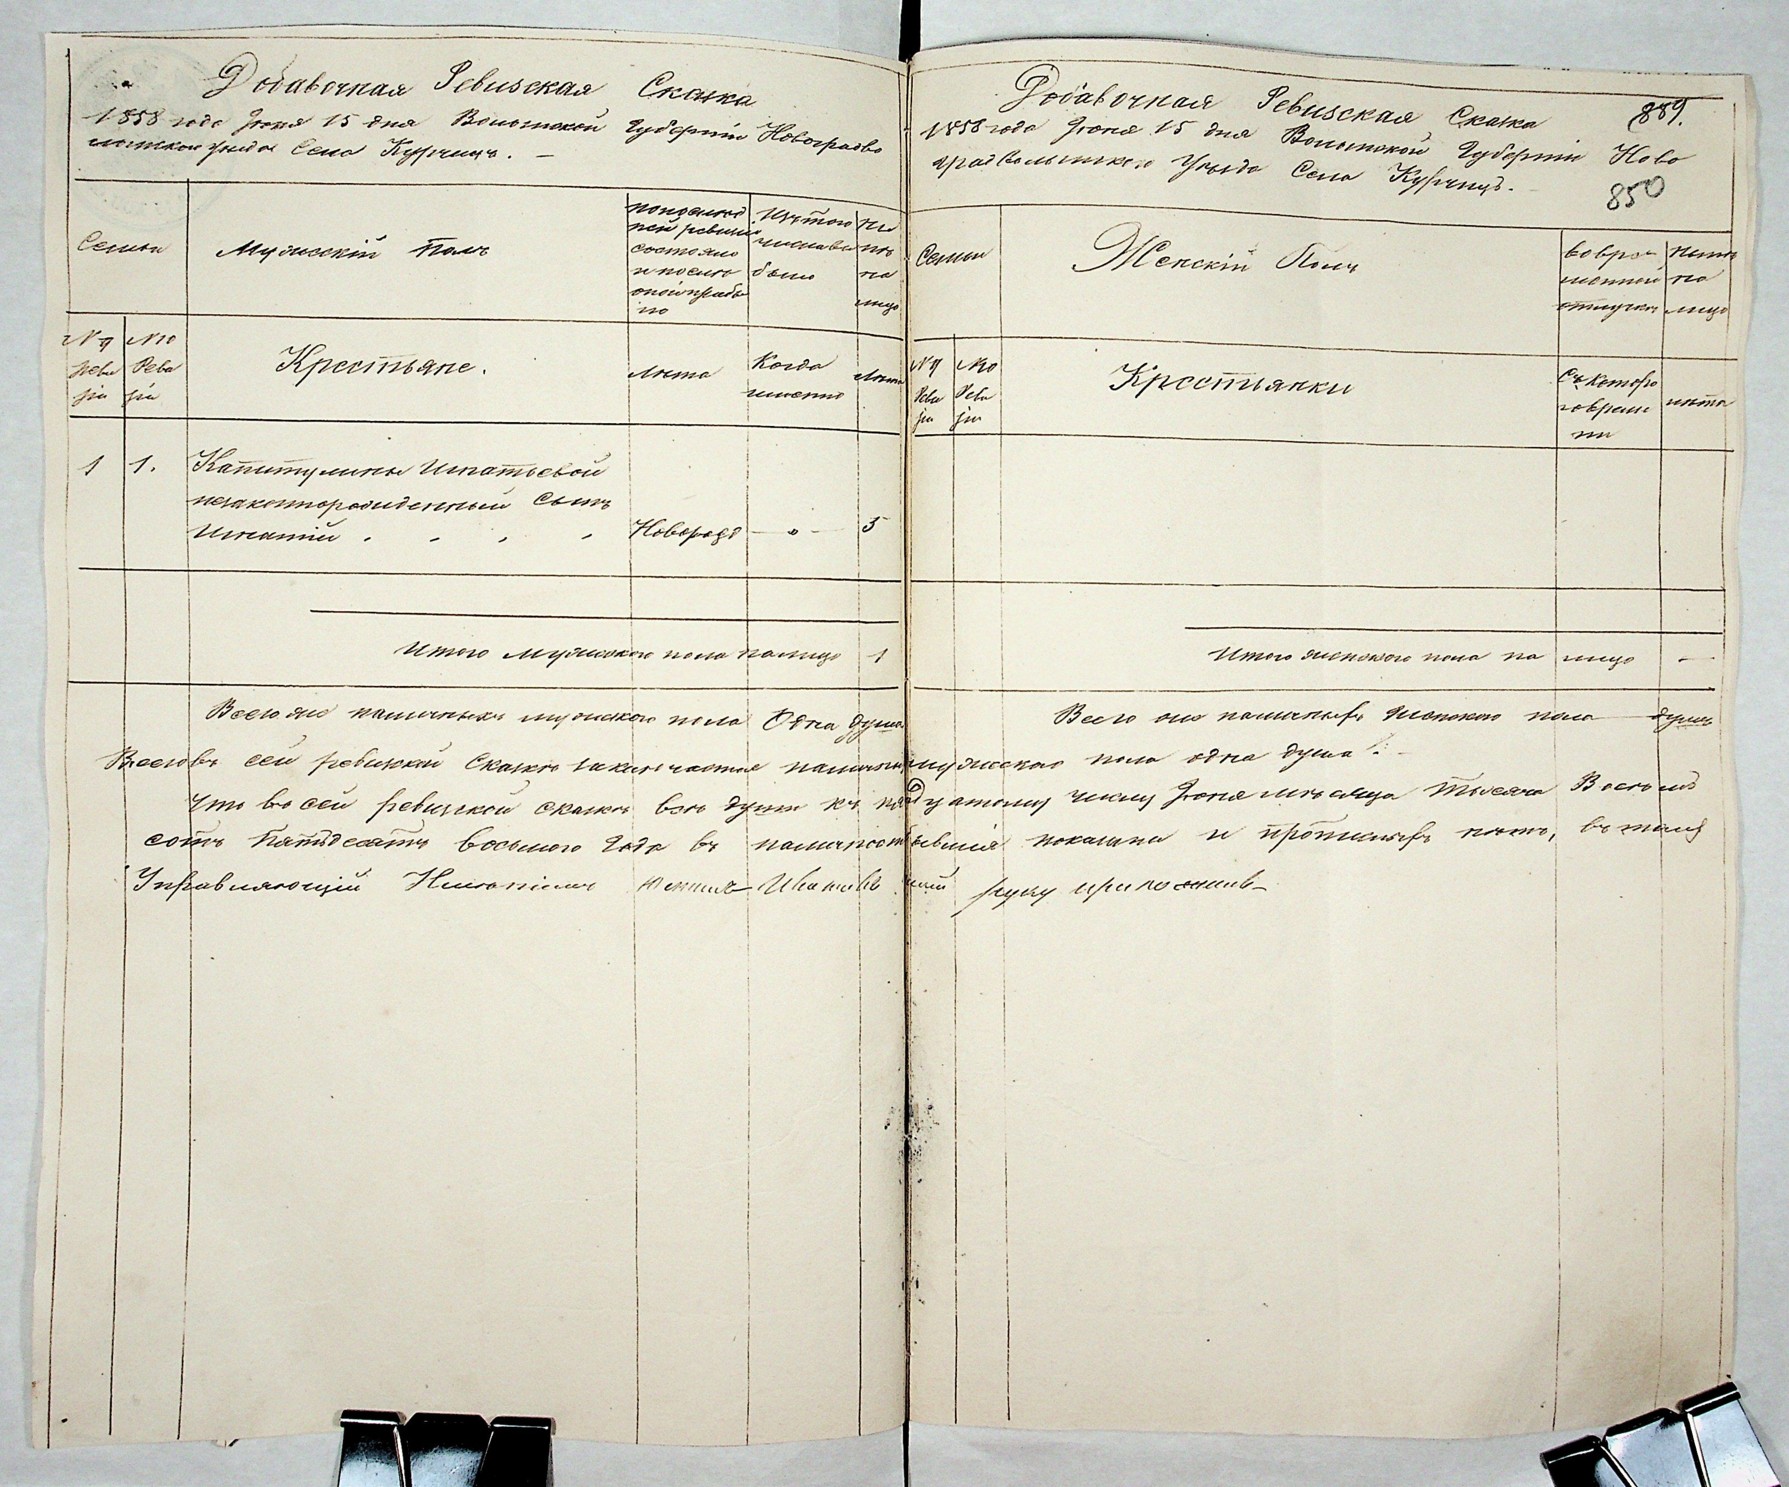 Добавочная Ревизская Сказка
1858 года Іюня 15 дня Волынской Губерніи Новоградво
лынскаго уѣзда Села Курчицъ. –
Семьи
Мужескій Полъ
по послѣд
ней ревизіи
состояло
и после
оной прибы
ло
Изътого
числа вы
было
Ны
нѣ
на
лицо
№ 9
Реви
зіи
№ 10
Реви
зіи
Крестьяне.
Лѣта
Когда
именно
Лѣта
1 1. Капитулины Игнатьевой
незаконнорожденный Сынъ
Игнатій . . . . Новорожд — „ — 5
Итого мужескаго пола налицо 1
Всего же наличныхъ мужескаго пола Одна душа
Добавочная Ревизская Сказка
889.
1858 года Іюня 15 дня Волынской Губерніи Ново
градволынскаго Уѣзда Села Курчицъ.
850
Семьи
Женскій Полъ
во вре
менной
отлучкѣ
Нынѣ
на
лицо
№ 9
Реви
зіи
№ 10
Реви
зіи
Крестьянки
Съ котора
го време
ни
лѣта
Итого женскаго пола на лицо —
Всего же наличныхъ Женскаго пола — душъ
Всего въ сей ревизской Сказкѣ заключается наличныхъ мужескаго пола одна душа. –
Что въ сей ревизской сказкѣ всѣ души къ 15 числу Іюня мѣсяца Тысяча Восемь
сотъ Пятьдесятъ восьмого Года въ наличности бывшія показаны и прописныхъ нѣтъ, въ томъ
Управляющій Имѣніемъ руку приложилъ –